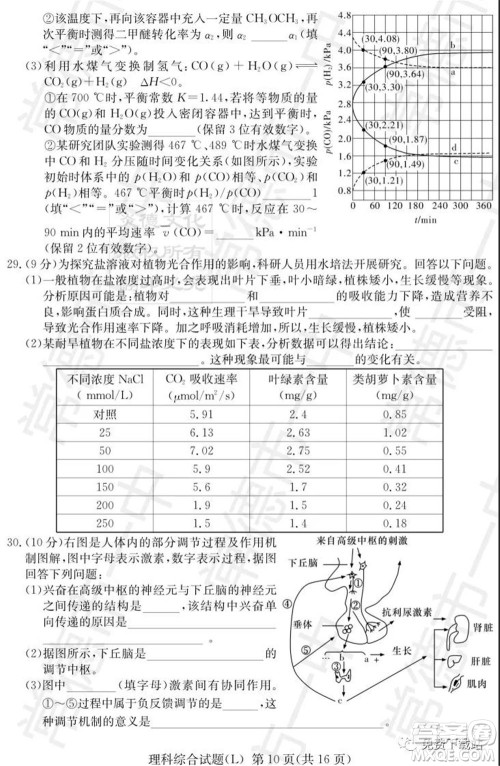 ②该温度下,再向该容器中充入一定量 CH₃OCH₃,再
次平衡时测得二甲醚转化率为 α₂,则 α₂______α₁(填
“<”“=”或“>”)。
(3)利用水煤气变换制氢气:CO(g)+H₂O(g)⇌
CO₂(g)+H₂(g) ΔH<0。
①在 700 ℃时,平衡常数 K=1.44,若将等物质的量
的 CO(g)和 H₂O(g)投入密闭容器中,达到平衡时,
CO 物质的量分数为______(保留 3 位有效数字)。
②某研究团队实验测得 467 ℃、489 ℃时水煤气变换
中 CO 和 H₂ 分压随时间变化关系(如图所示),实验
初始时体系中的 p(H₂O)和 p(CO)相等、p(CO₂)和
p(H₂)相等。467 ℃平衡时 p(H₂)/p(CO)______1
(填“<”“=”或“>”),计算 467 ℃时,反应在 30~
90 min 内的平均速率 v(CO)=______kPa·min⁻¹
(保留 2 位有效数字)。
4.8
4.4
4.0
3.6
3.2
2.8
2.4
2.0
1.6
1.2
0.8
p(H₂)/kPa
p(CO)/kPa
(30,4.08)
(90,3.80)
(90,3.64)
(30,3.30)
(30,2.21)
(90,1.87)
(90,1.49)
(30,1.21)
b
a
d
c
0 60 120 180 240 300 360
t/min
29.(9 分)为探究盐溶液对植物光合作用的影响,科研人员用水培法开展研究。回答以下问题。
(1)一般植物在盐浓度过高时,会表现出叶片下垂,叶小暗绿,植株矮小,生长缓慢等现象。
分析原因可能是:植物对______和______的吸收能力下降,造成营养不
良,影响蛋白质合成。同时,这种生理干旱导致叶片______,使______受阻,
导致光合作用速率下降。加之呼吸消耗增加,所以,生长缓慢,植株矮小。
(2)某耐旱植物在不同盐浓度下的表现如下表,分析数据可以得出结论:______
______。这种现象最可能与______的变化有关。
不同浓度 NaCl (mmol/L) CO₂ 吸收速率 (μmol/m²/s) 叶绿素含量 (mg/g) 类胡萝卜素含量 (mg/g)
对照 5.91 2.4 0.85
25 6.13 2.63 1.02
50 7.02 2.75 0.55
100 5.9 2.52 0.41
150 5.6 1.7 0.32
200 1.9 1.5 0.24
250 1.5 1.4 0.18
30.(10 分)右图是人体内的部分调节过程及作用机
制图解,图中字母表示激素,数字表示过程,据图
回答下列问题:
(1)兴奋在高级中枢的神经元与下丘脑的神经元
之间传递的结构是______,该结构中兴奋单
向传递的原因是______
______。
(2)据图所示,下丘脑是______的
调节中枢。
(3)图中______(填字母)激素间有协同作用。
①~⑤过程中属于负反馈调节的是______,这
种调节机制的意义是______。
来自高级中枢的刺激
下丘脑
①
②
④
垂体
抗利尿激素
⑤
b
a
+
生长
③
c
肾脏
肝脏
肌肉
理科综合试题(L) 第 10 页(共 16 页)